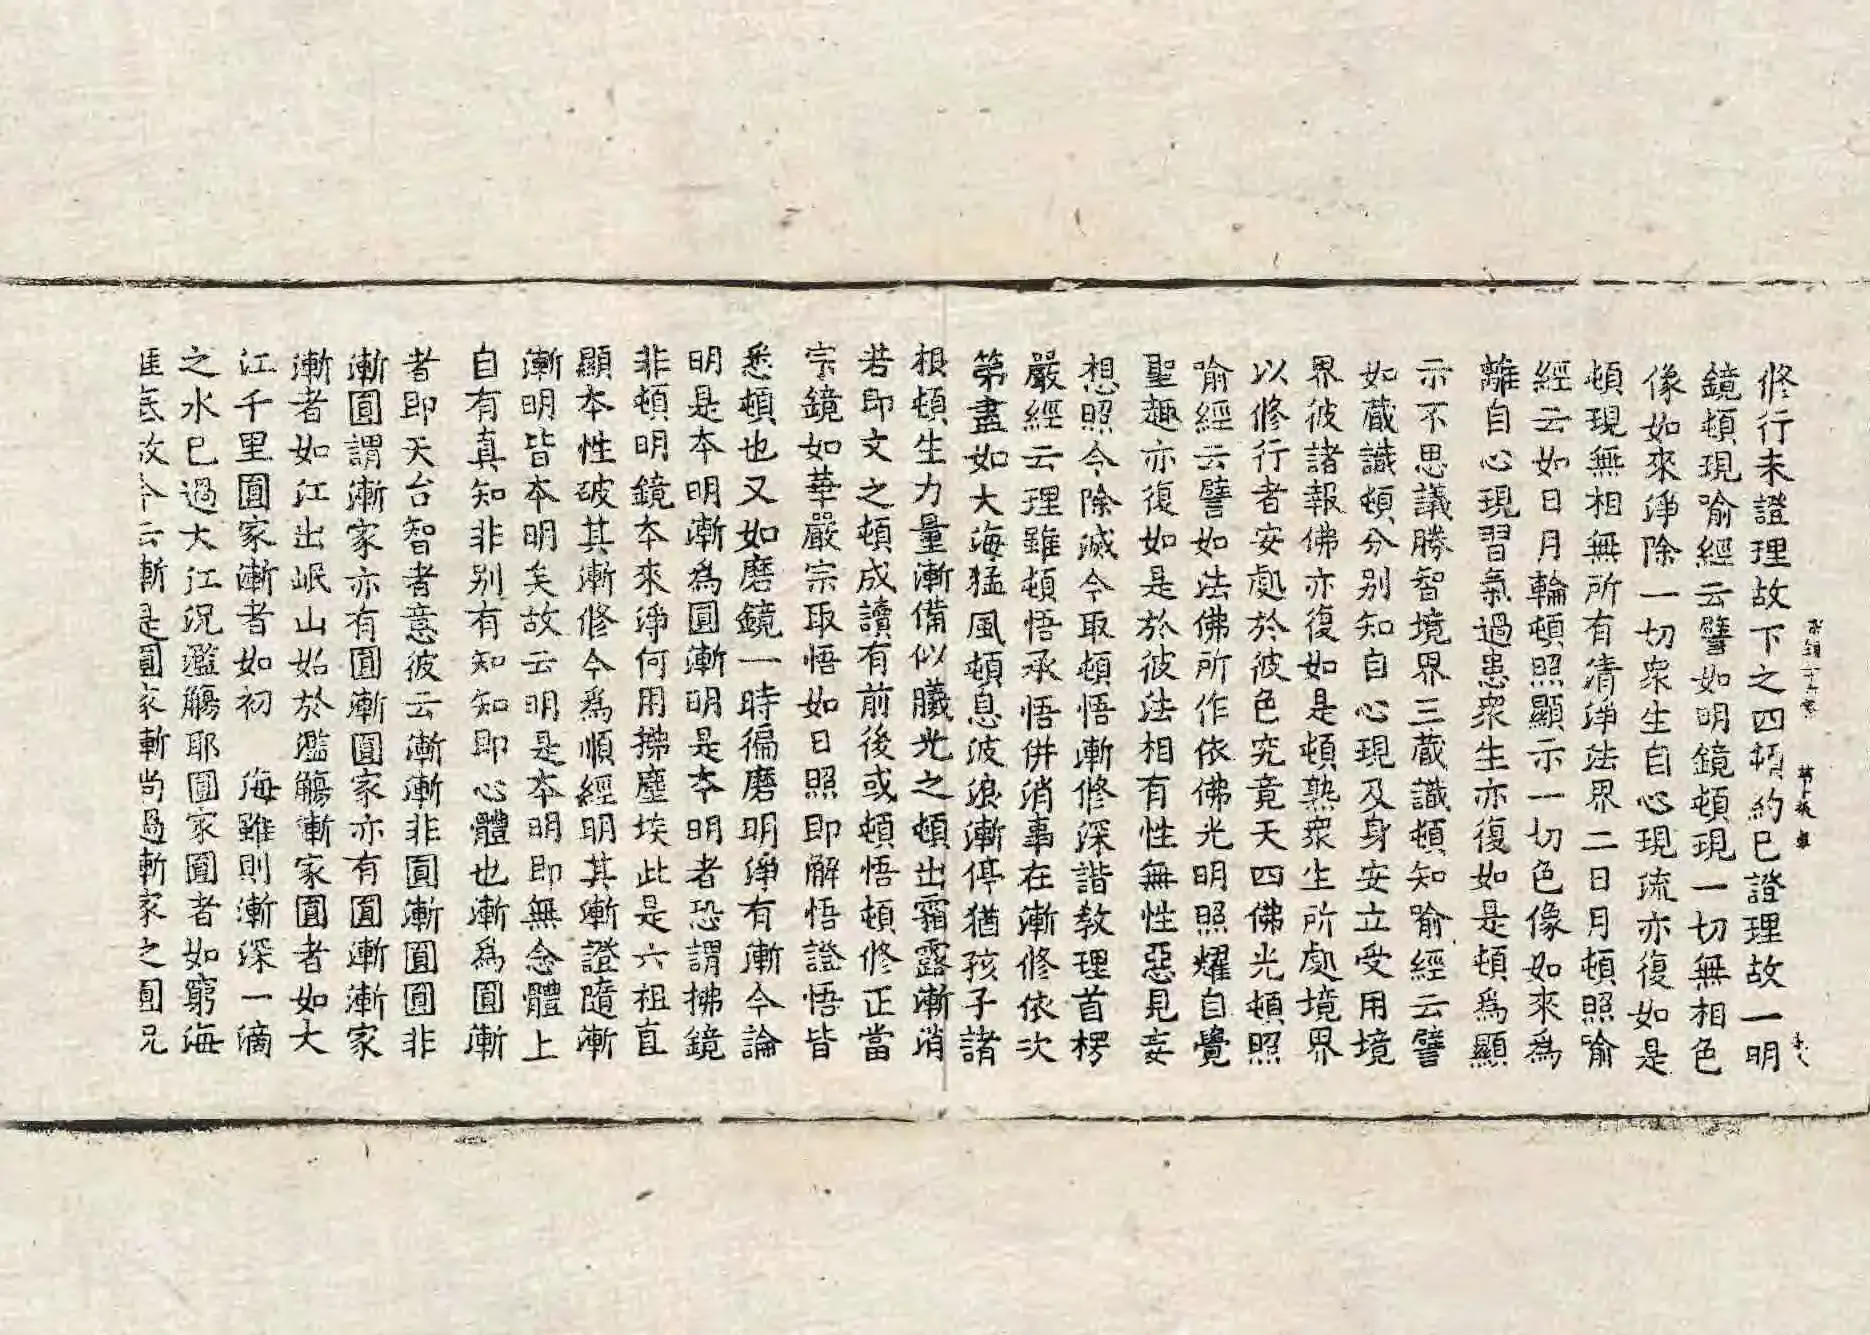 修行未證理故下之四頓約已證理故一明
鏡頓現喻經云譬如明鏡頓現一切無相色
像如來淨除一切衆生自心現流亦復如是
頓現無相無所有清淨法界二日月頓照喻
經云如日月輪頓照顯示一切色像如來爲
離自心現習氣過患衆生亦復如是頓爲顯
示不思議勝智境界三藏識頓知喻經云譬
如藏識頓分別知自心現及身安立受用境
界彼諸報佛亦復如是頓熟衆生所處境界
以修行者安處於彼色究竟天四佛光頓照
喻經云譬如法佛所作依佛光明照耀自覺
聖趣亦復如是於彼法相有性無性惡見妄
想照令除滅今取頓悟漸修深諧教理首楞
嚴經云理雖頓悟承悟併消事在漸修依次
第盡如大海猛風頓息波浪漸停猶孩子諸
根頓生力量漸備似曦光之頓出霜露漸消
若即文之頓成讀有前後或頓悟頓修正當
宗鏡如華嚴宗取悟如日照即解悟證悟皆
悉頓也又如磨鏡一時徧磨明淨有漸今論
明是本明漸爲圓漸明是本明者恐謂拂鏡
非頓明鏡本來淨何用拂塵埃此是六祖直
顯本性破其漸修今爲順經明其漸證隨漸
漸明皆本明矣故云明是本明即無念體上
自有真知非别有知知即心體也漸爲圓漸
者即天台智者意彼云漸漸非圓漸圓圓非
漸圓謂漸家亦有圓漸圓家亦有圓漸漸家
漸者如江出岷山始於濫觴漸家圓者如大
江千里圓家漸者如初 海雖則漸深一滴
之水已過大江況濫觴耶圓家圓者如窮海
底故今云漸是圓家漸尚過漸家之圓況